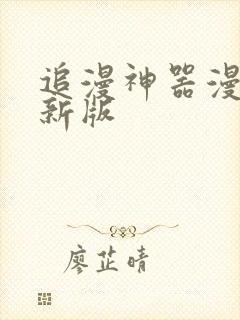 追漫神器漫
新版
廖芷晴